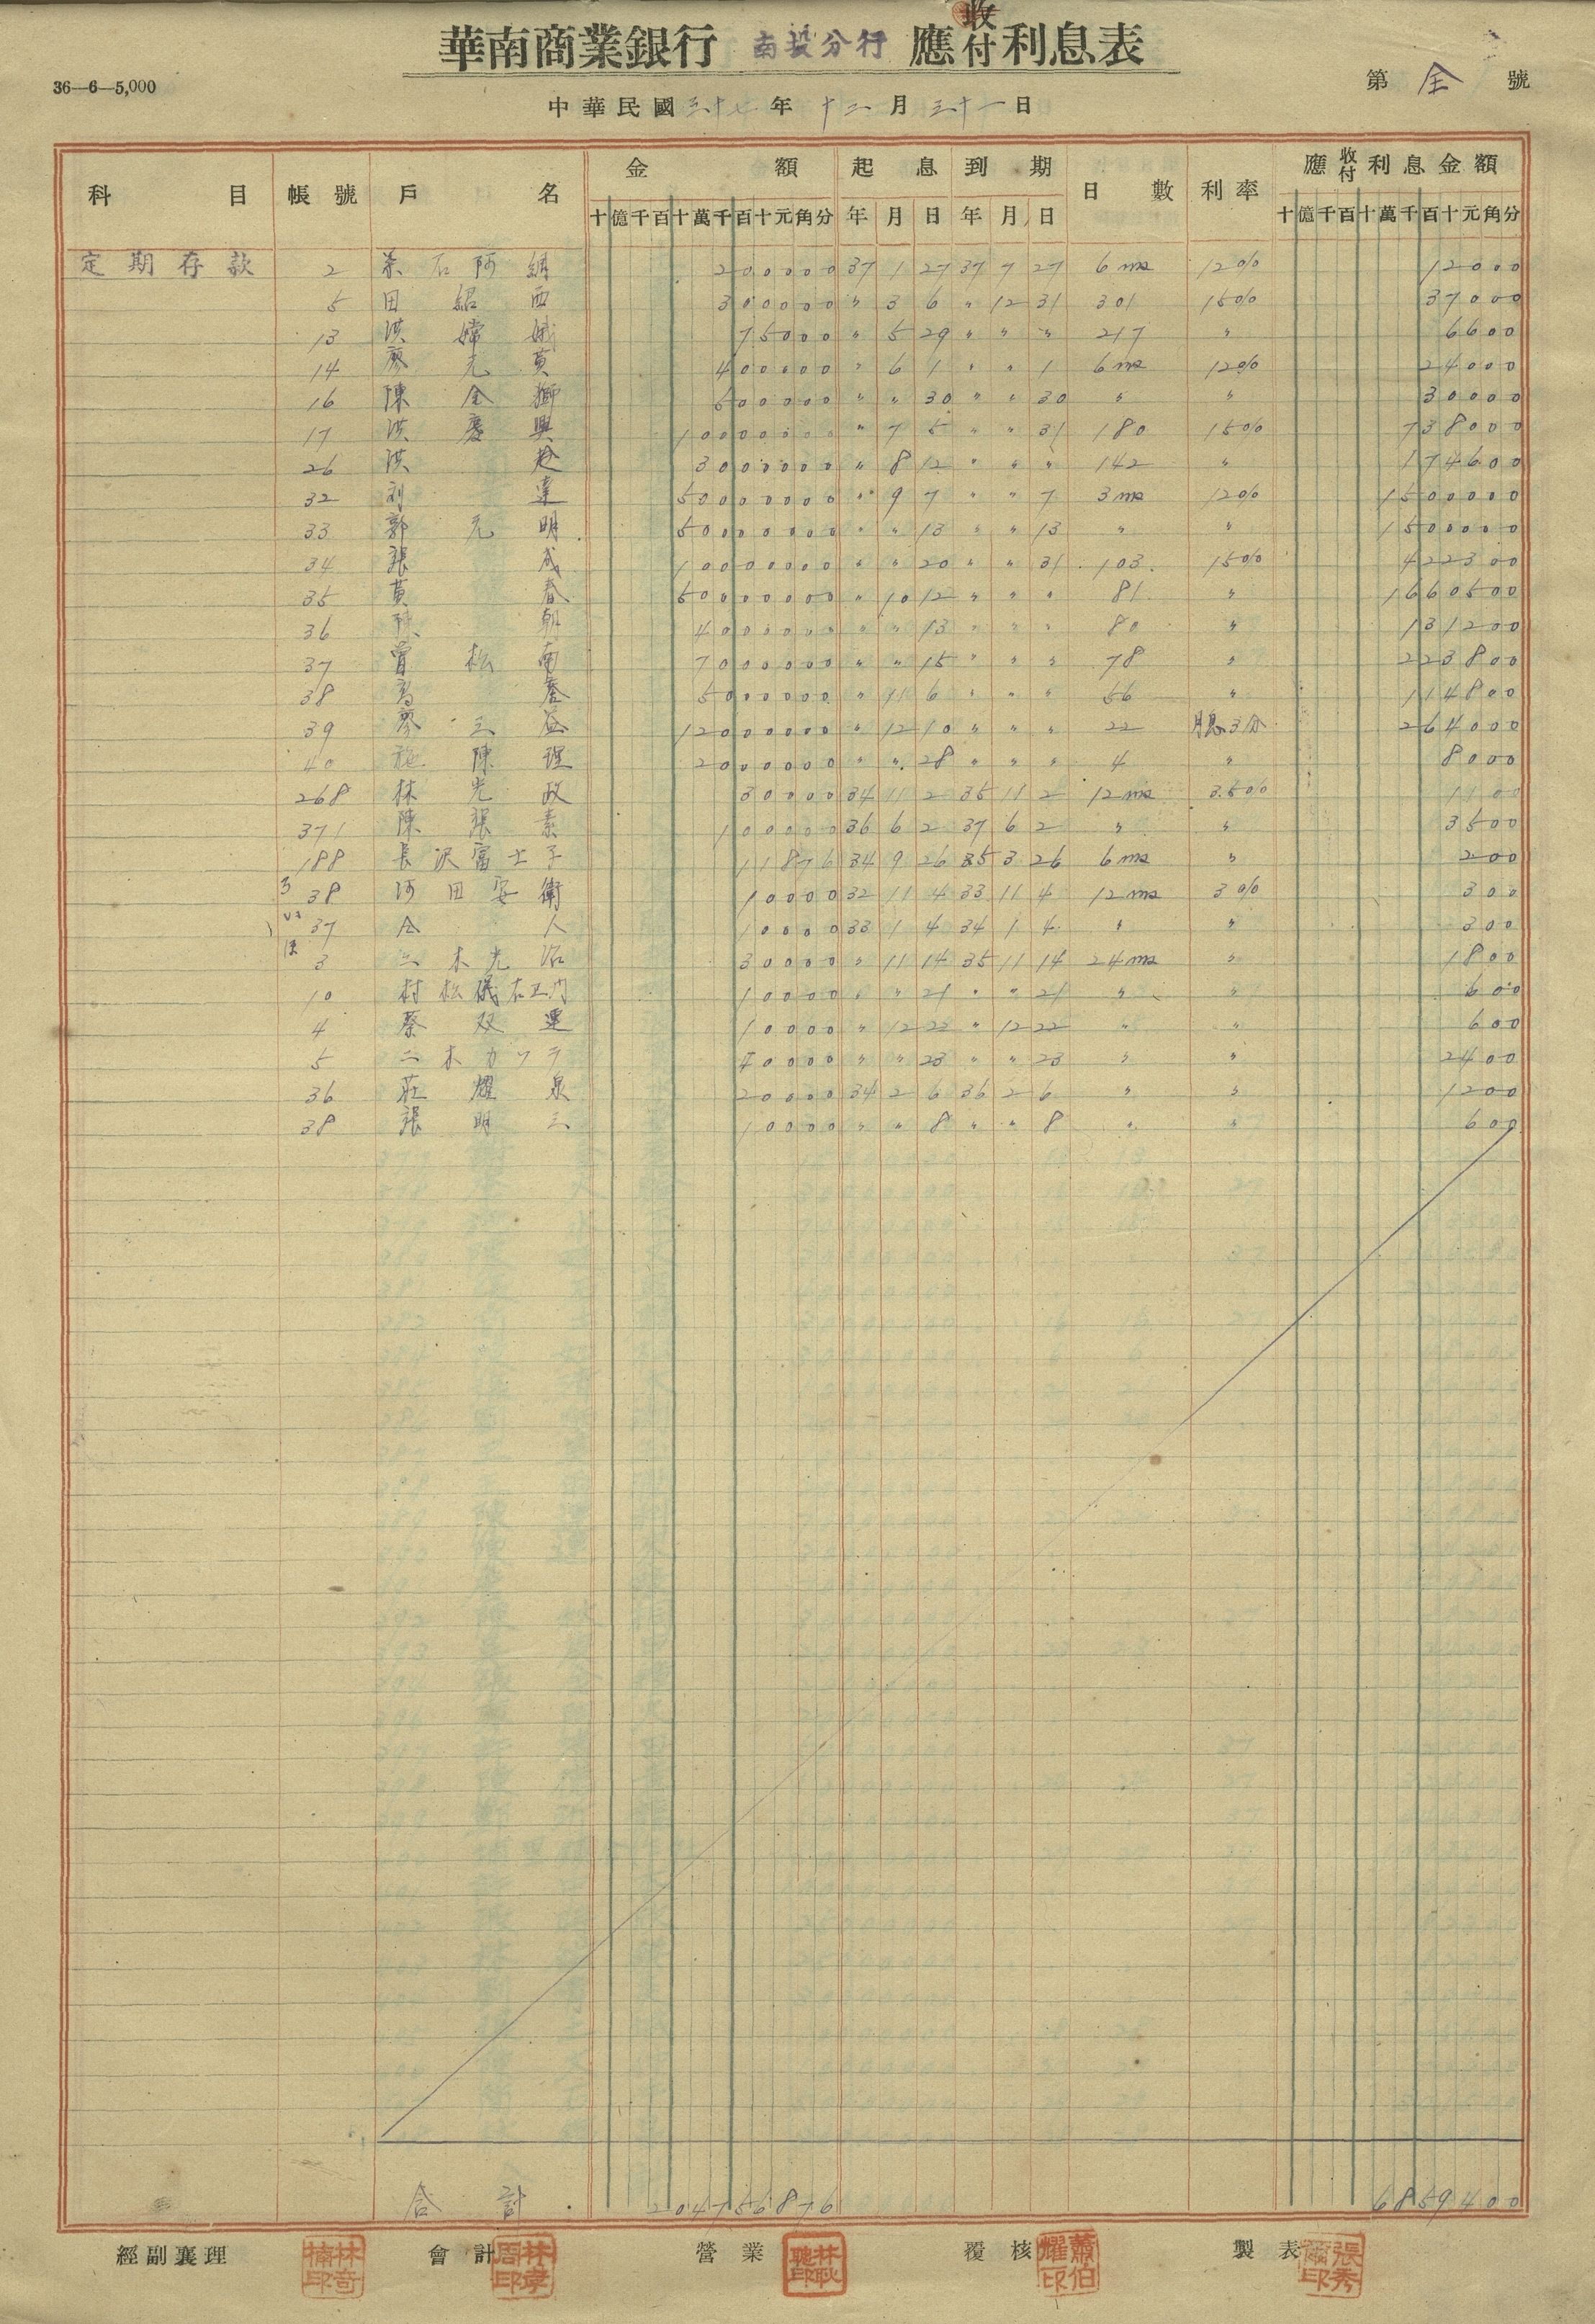 華南商業銀行 南投分行 應收付利息表
36—6—5,000
第 全 號
中華民國三十七年十二月三十一日
科目 帳號 戶名 金額 起息 到期 日數 利率 應收付利息金額
十億千百十萬千百十元角分 年月日 年月日 十億千百十萬千百十元角分
定期存款 2 石阿 200000 37 1 27 37 7 27 6ms 12% 12000
5 田紹西 300000 〃 3 6 〃 12 31 301 15% 37000
13 洪嫦娥 75000 〃 5 29 〃 〃 〃 217 〃 6600
14 廖元 400000 〃 6 1 〃 〃 1 6ms 12% 24000
16 陳金獅 500000 〃 〃 30 〃 〃 30 〃 〃 30000
17 洪慶興 10000000 〃 7 5 〃 〃 31 180 15% 738000
26 洪 3000000 〃 8 12 〃 〃 〃 142 〃 174600
32 刘達 50000000 〃 9 7 〃 〃 7 3ms 12% 1500000
33 郭元明 50000000 〃 〃 13 〃 〃 13 〃 〃 1500000
34 張成 10000000 〃 〃 20 〃 〃 31 103 15% 422300
35 黃春 50000000 〃 10 12 〃 〃 〃 81 〃 1660500
36 朝 4000000 〃 〃 13 〃 〃 〃 80 〃 131200
37 曾松南 7000000 〃 〃 15 〃 〃 〃 78 〃 223800
38 5000000 〃 11 6 〃 〃 〃 56 〃 114800
39 廖三益 12000000 〃 12 10 〃 〃 〃 22 月息3分 264000
40 施陳理 2000000 〃 〃 28 〃 〃 〃 4 〃 8000
268 林光政 30000 34 11 2 35 11 2 12ms 3.5% 1100
371 陳張素 100000 36 6 2 37 6 2 〃 〃 3500
188 長沢富士子 11876 34 9 26 35 3 26 6ms 〃 200
ろ38 河田安衛 10000 32 11 4 33 11 4 12ms 3% 300
い37 仝人 10000 33 1 4 34 1 4 〃 〃 300
は3 二木光治 30000 〃 11 14 35 11 14 24ms 〃 1800
10 村松儀右エ门 10000 〃 〃 21 〃 〃 21 〃 〃 600
4 蔡双連 10000 〃 12 22 〃 12 22 〃 〃 600
5 二木カツラ 40000 〃 〃 23 〃 〃 23 〃 〃 2400
36 莊耀泉 20000 34 2 6 36 2 6 〃 〃 1200
38 張明三 10000 〃 〃 8 〃 〃 8 〃 〃 600
合計 204756876 6859400
經副襄理 林楠印 會計 林印 營業 林耿聰印 覆核 蕭伯耀印 製表 張秀爾印